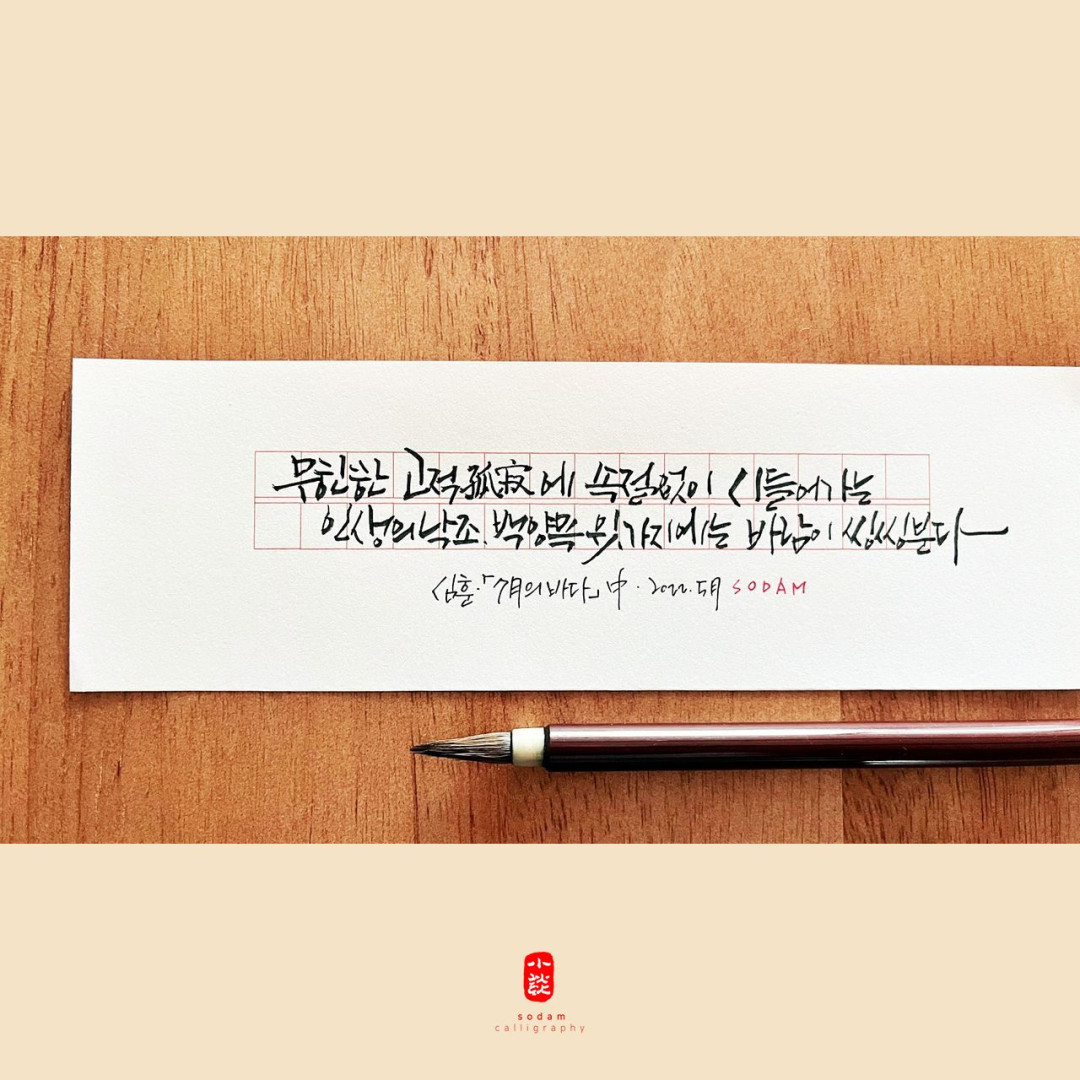 무한한 고적孤寂에 속절없이 시들어가는
인생의 낙조. 백양목 윗가지에는 바람이 씽씽분다
심훈·「7月의 바다」中 · 2022. 5月 SODAM
小談
sodam
calligraphy